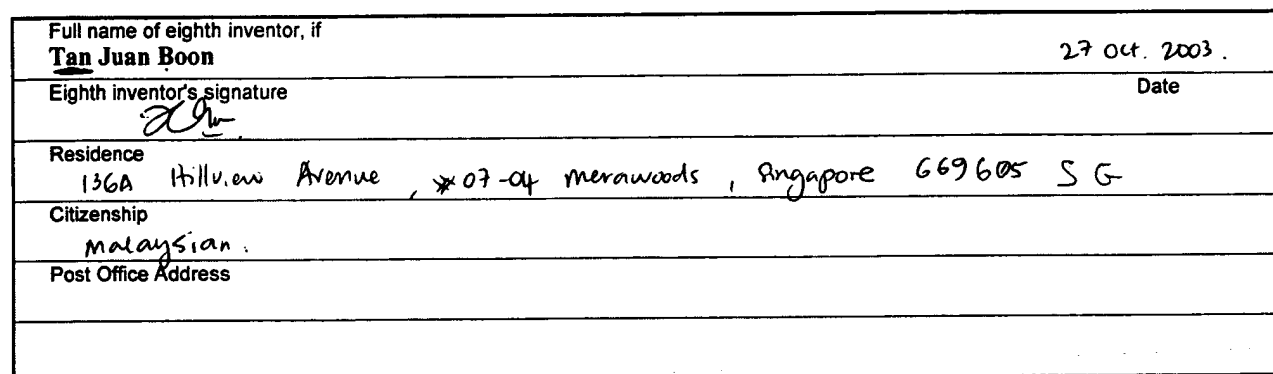 Full name of eighth inventor, if
Tan Juan Boon 27 Oct. 2003.
Eighth inventor's signature Date
Residence
136A Hillview Avenue, #07-04 Merawoods, Singapore 669605 SG
Citizenship
Malaysian.
Post Office Address